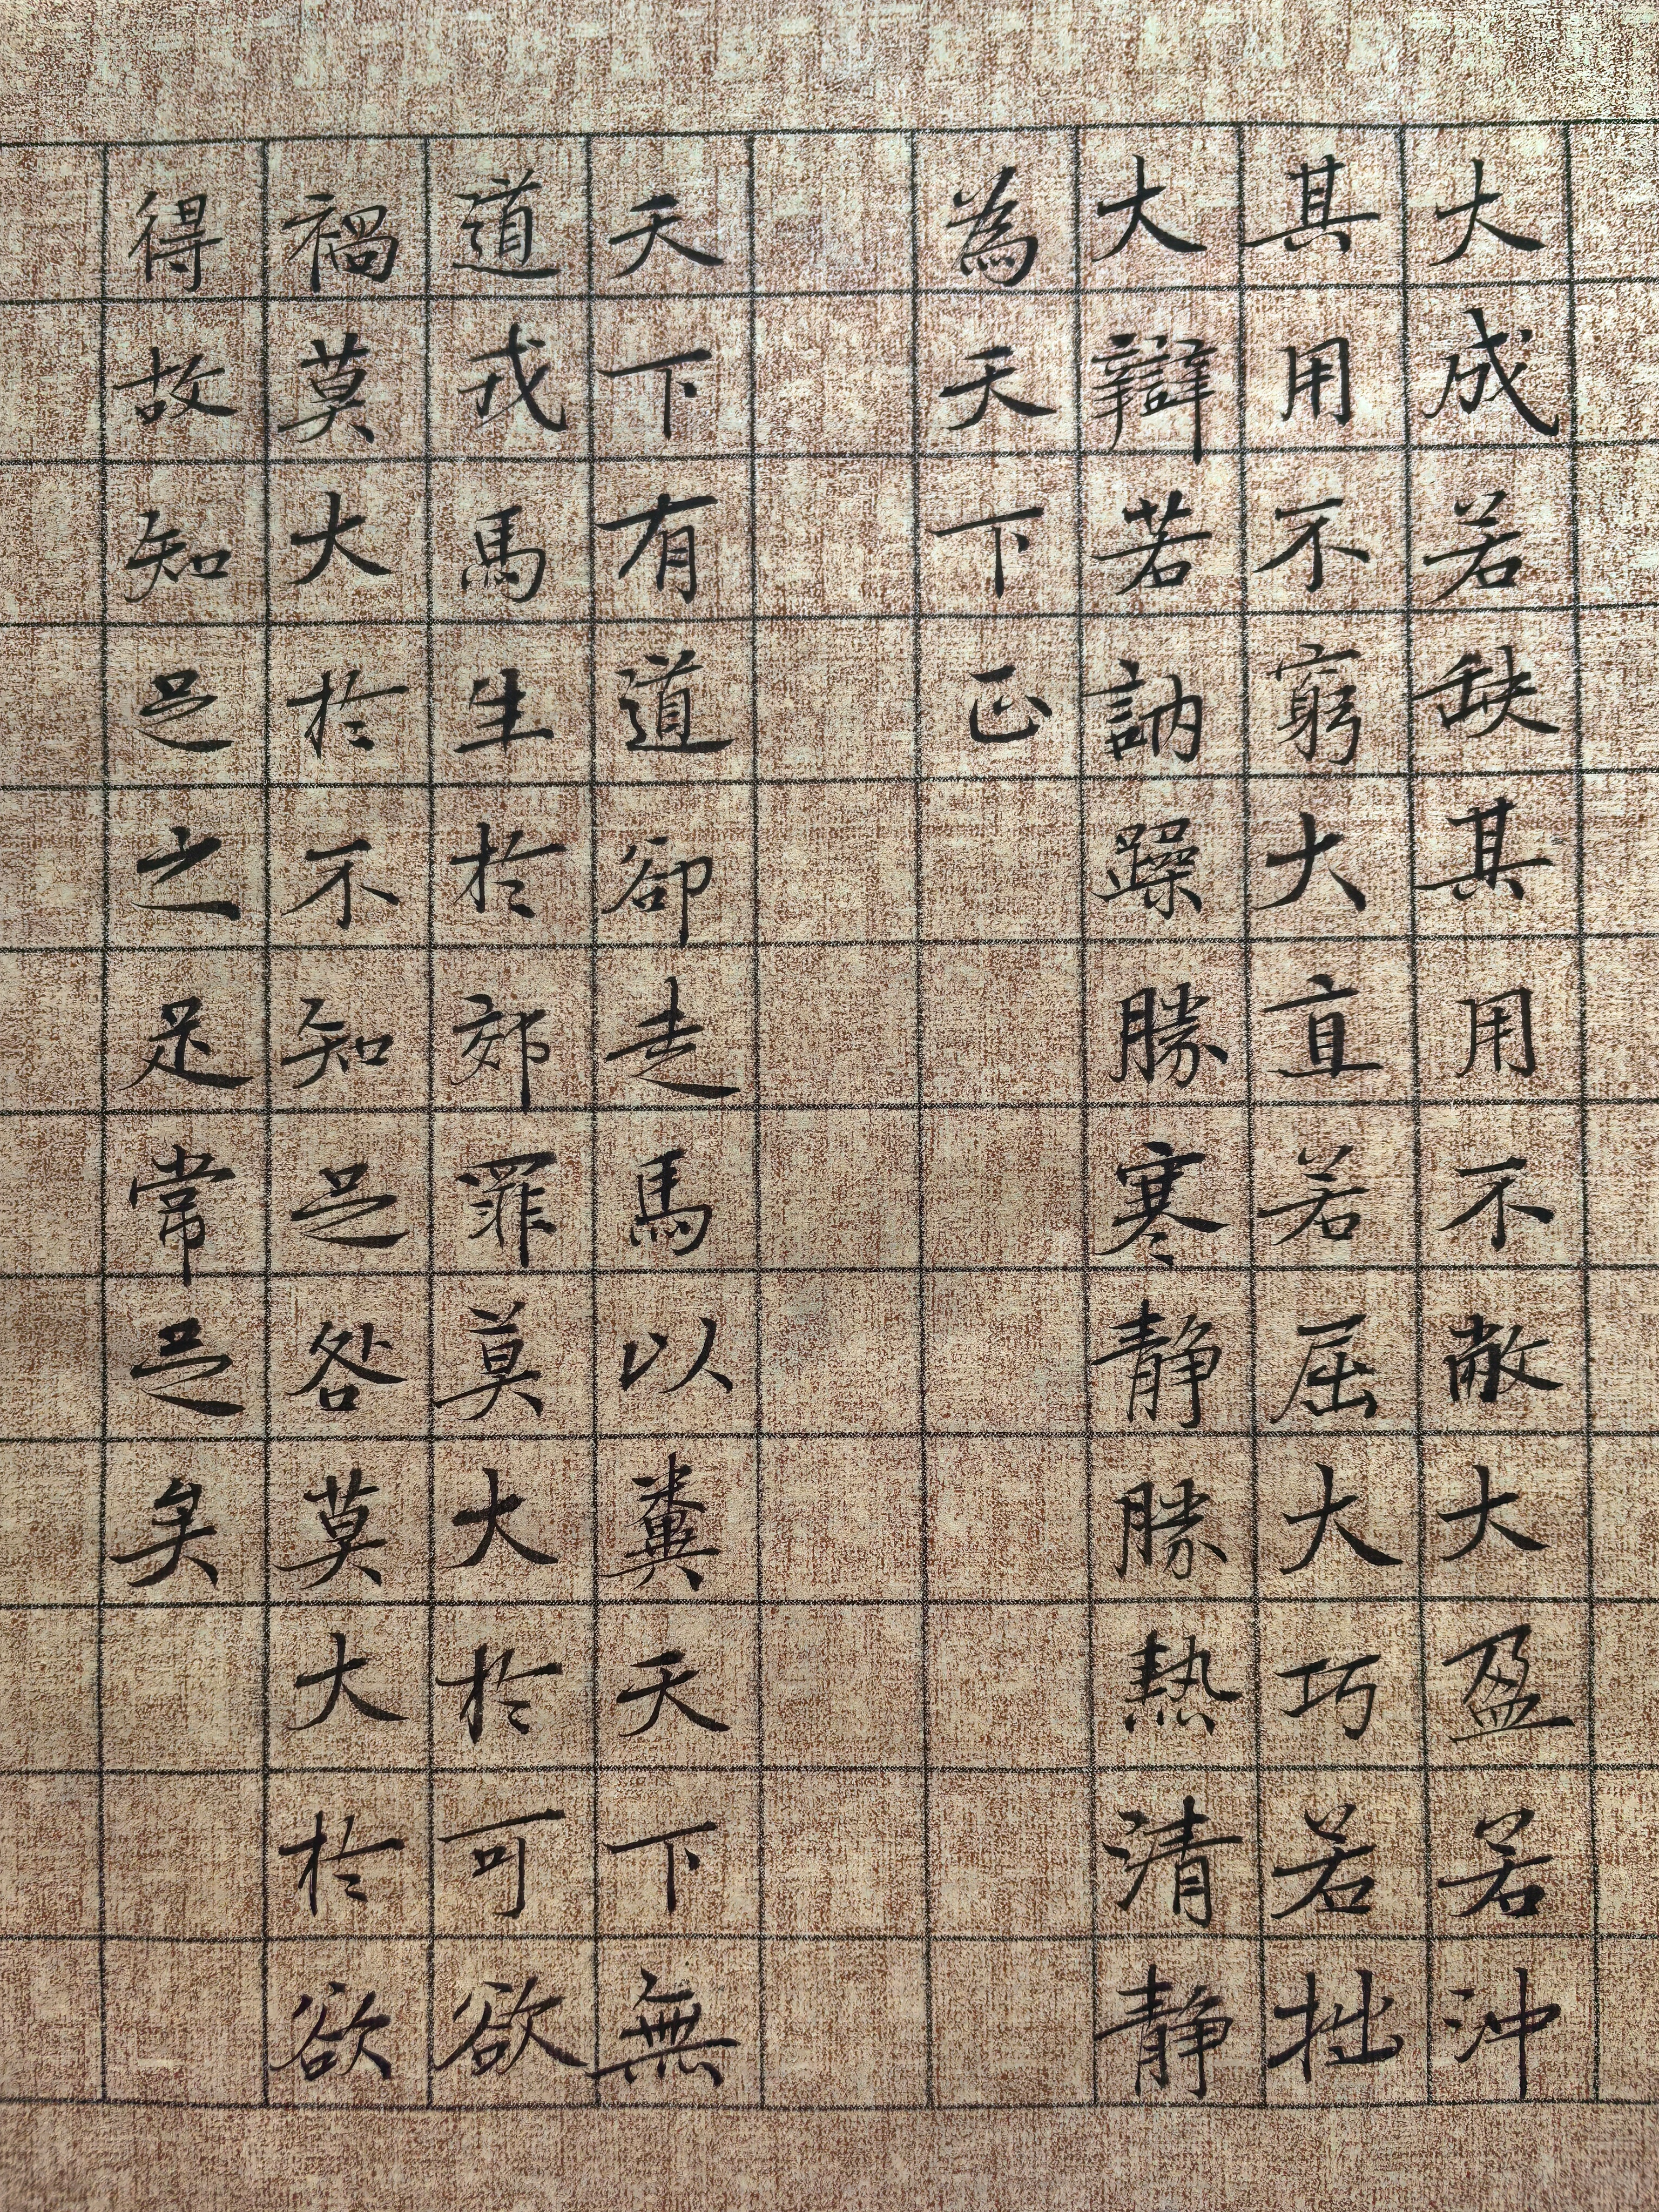 大成若缺其用不敝大盈若沖
其用不窮大直若屈大巧若拙
大辯若訥躁勝寒靜勝熱清靜
為天下正
天下有道卻走馬以糞天下無
道戎馬生於郊罪莫大於可欲
禍莫大於不知足咎莫大於欲
得故知足之足常足矣